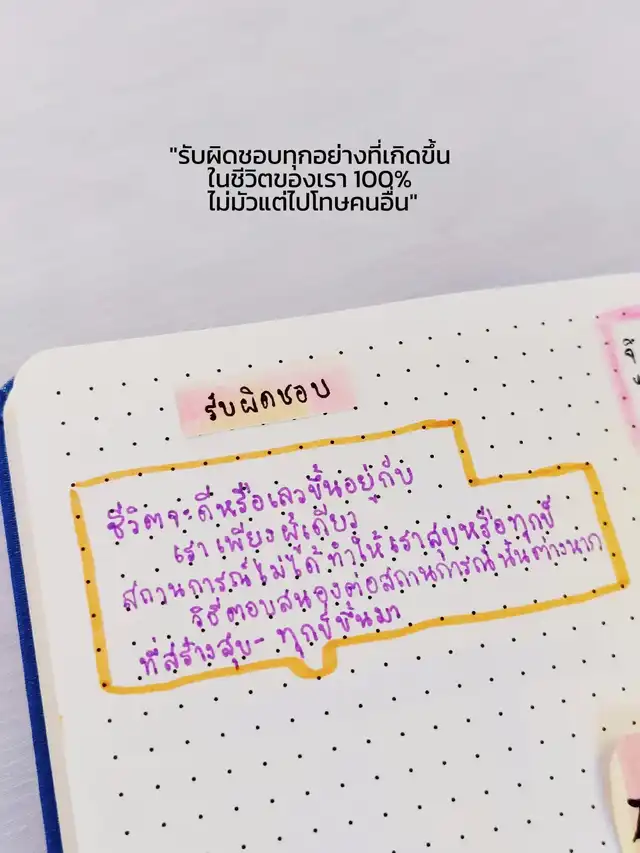 "รับผิดชอบทุกอย่างที่เกิดขึ้น
ในชีวิตของเรา 100%
ไม่มัวแต่ไปโทษคนอื่น"
รับผิดชอบ
ชีวิตจะดีหรือเลวขึ้นอยู่กับ
เราเพียงผู้เดียว
สถานการณ์ไม่ได้ทำให้เราสุขหรือทุกข์
วิธีตอบสนองต่อสถานการณ์นั้นต่างหาก
ที่สร้างสุข- ทุกข์ขึ้นมา